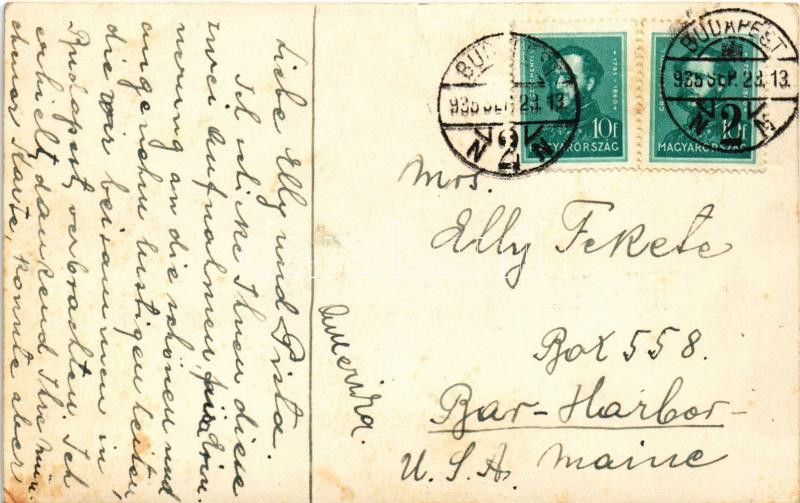 Liebe Elly und Pista.
Ich schicke Ihnen diese
zwei Aufnahmen, zur Erin-
nerung an die schönen und
angenehm lustigen Zeiten,
die wir beisammen in
Budapest verbrachten. Ich
erhielt dankend Ihre
Karte, konnte aber
Amerika.
BUDAPEST
935 SEP. 23. 13
2
N N
1791-1860
10f
MAGYARORSZÁG
BUDAPEST
935 SEP. 23. 13.
2
N N
10f
MAGYARORSZÁG
Mrs.
Elly Fekete
Box 558.
Bar-Harbor-
U.S.A. Maine